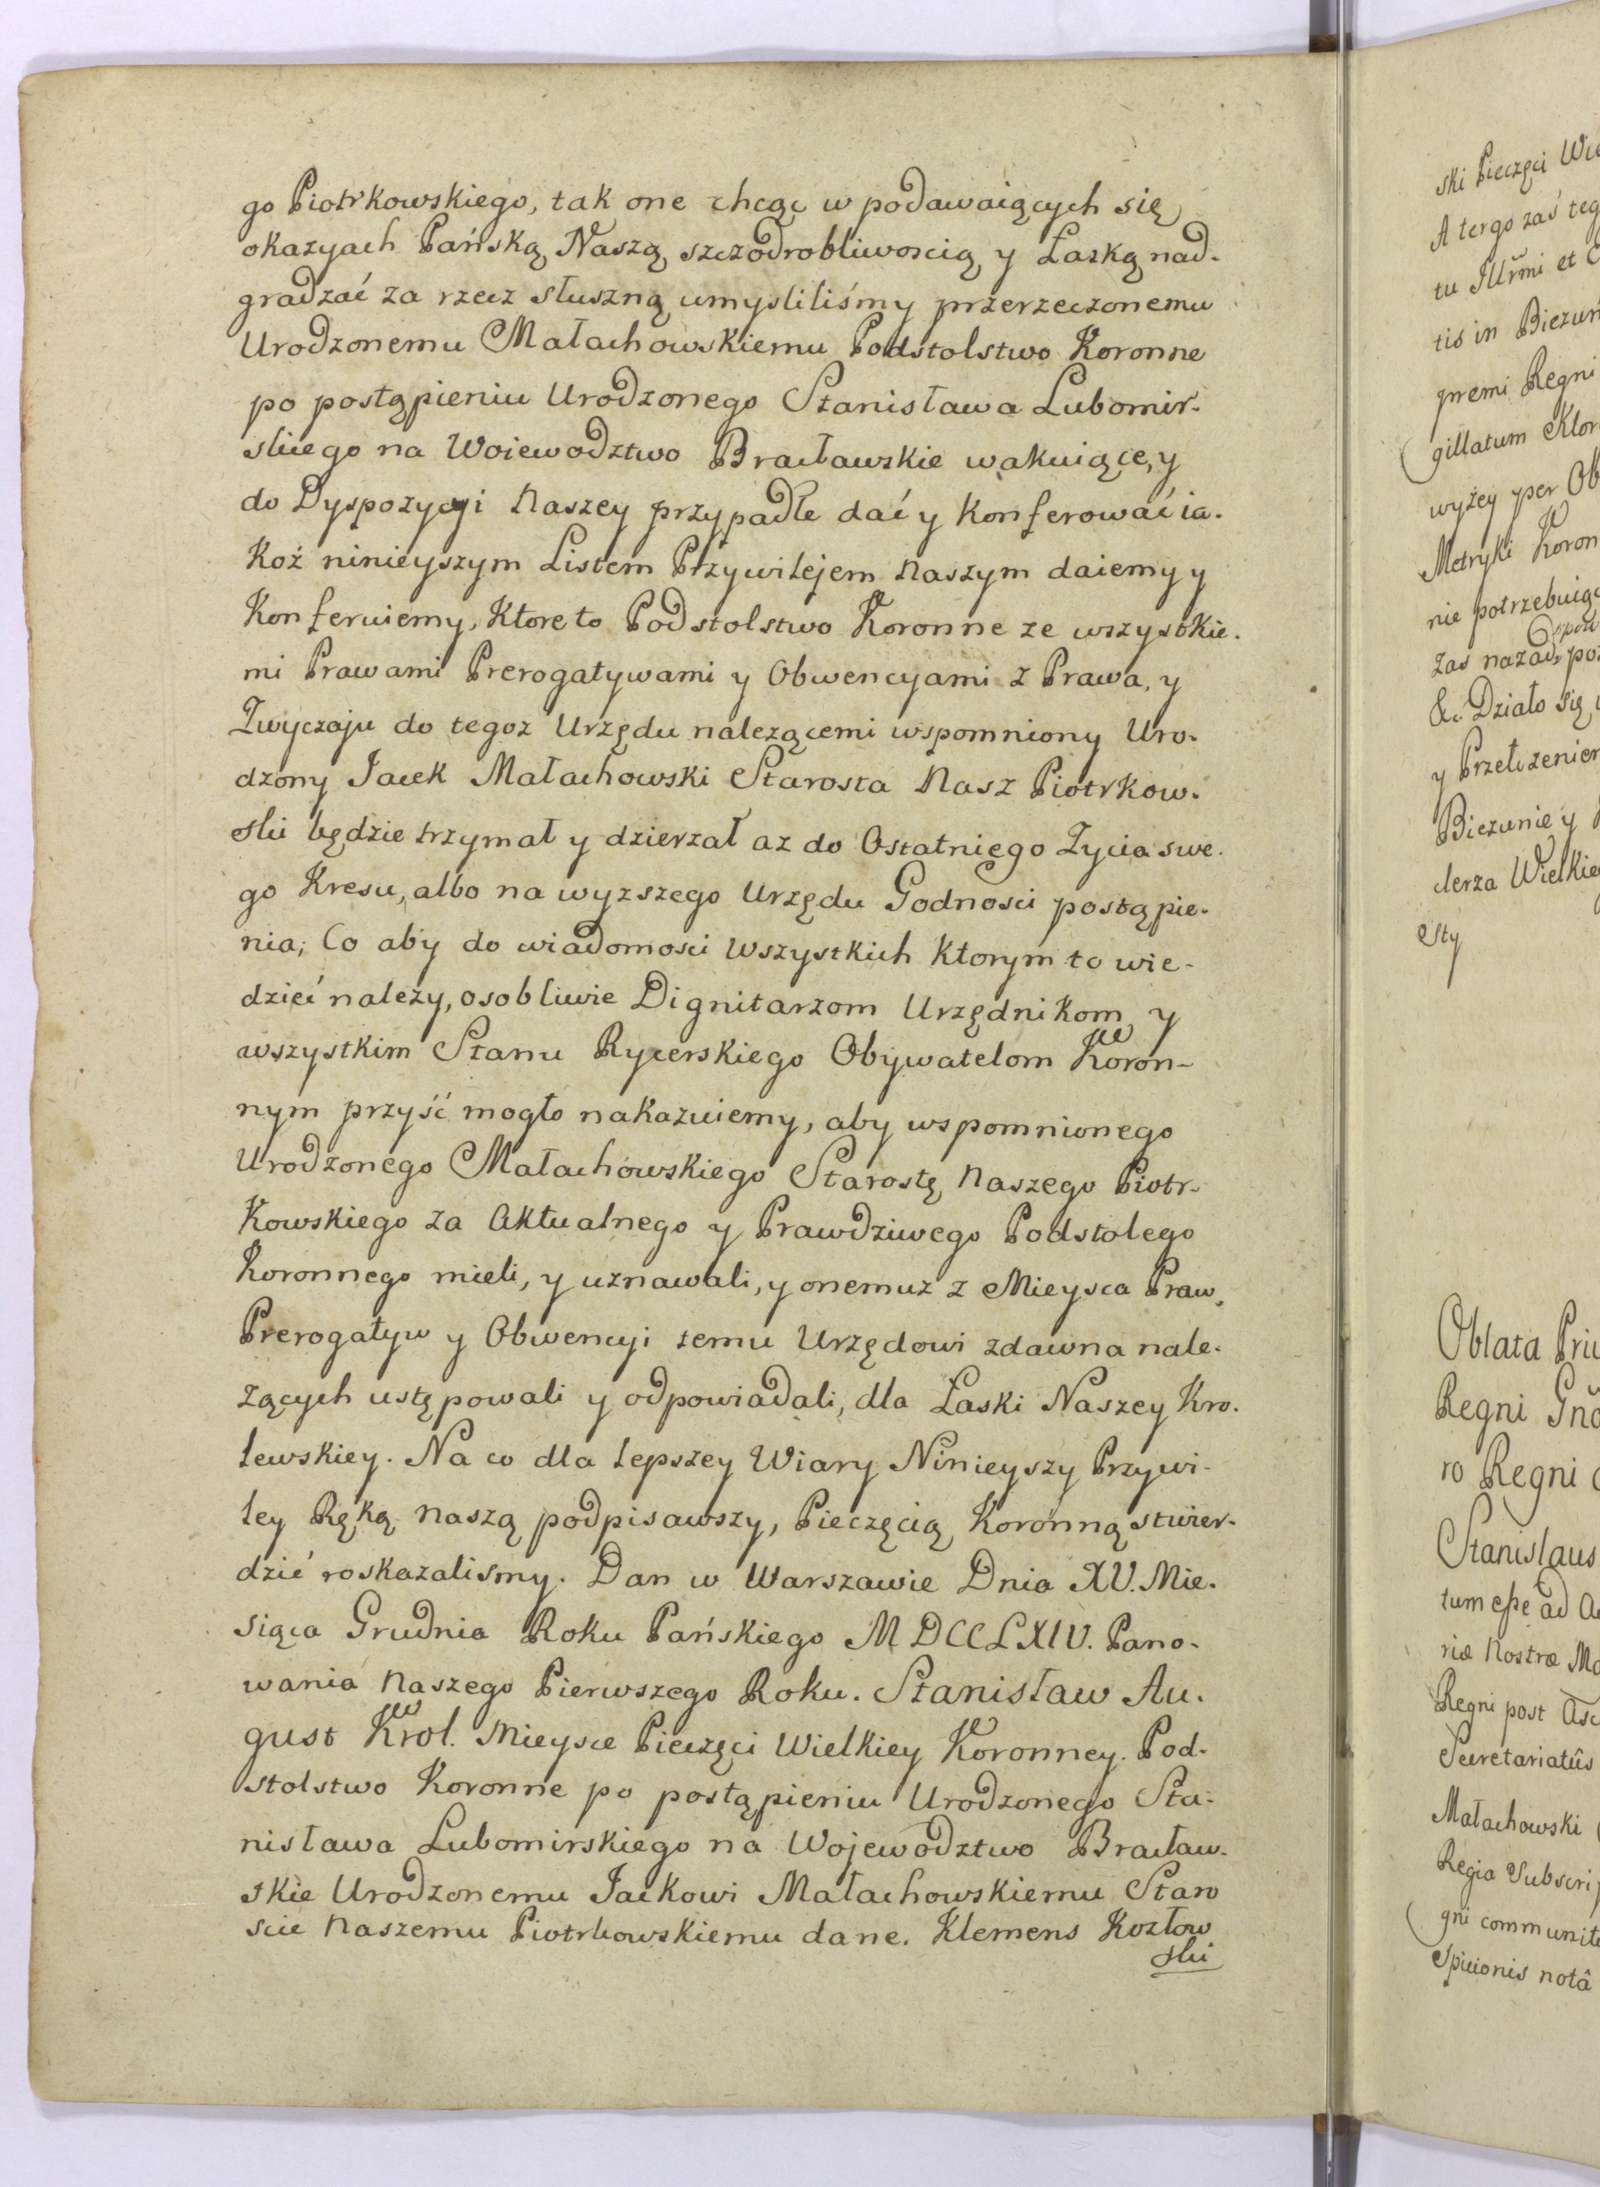 go Piotrkowskiego, tak one chcąc w podawaiących się
okazyach Pańską Naszą szczodrobliwoscią y Łaską nad-
gradzać za rzecz słuszną umysliliśmy przerzeczonemu
Urodzonemu Małachowskiemu Podstolstwo Koronne
po postąpieniu Urodzonego Stanisława Lubomir-
skiego na Woiewodztwo Bracławskie wakuiące, y
do Dyspozycyi Naszey przypadłe dać y Konferować ia-
Koż ninieyszym Listem Przywilejem Naszym daiemy y
Konferuiemy, Ktore to Podstolstwo Koronne ze wszystkie-
mi Prawami Prerogatywami y Obwencyami z Prawa, y
Zwyczaju do tegoz Urzędu nalezącemi wspomniony Uro-
dzony Jacek Małachowski Starosta Nasz Piotrkow-
ski będzie trzymał y dzierzał az do Ostatniego Zycia swe-
go Kresu, albo na wyzszego Urzędu Godnosci postąpie-
nia; Co aby do wiadomosci Wszystkich Ktorym to wie-
dzieć nalezy, osobliwie Dignitarzom Urzędnikom y
wszystkim Stanu Rycerskiego Obywatelom Koron-
nym przyść mogło nakazuiemy, aby wspomnionego
Urodzonego Małachowskiego Starostę Naszego Piotr-
Kowskiego za Aktualnego y Prawdziwego Podstolego
Koronnego mieli, y uznawali, y onemuz z Mieysca Praw,
Prerogatyw y Obwencyi temu Urzędowi zdawna nale-
zących ustępowali y odpowiadali, dla Łaski Naszey Kro-
lewskiey. Na co dla lepszey Wiary Ninieyszy Przywi-
ley Ręką Naszą podpisawszy, Pieczęcią Koronną stwier-
dzić roskazalismy. Dan w Warszawie Dnia XV. Mie-
siąca Grudnia Roku Pańskiego MDCCLXIV. Pano-
wania Naszego Pierwszego Roku. Stanisław Au-
gust Krol. Mieysce Pieczęci Wielkiey Koronney. Pod-
stolstwo Koronne po postąpieniu Urodzonego Sta-
nisława Lubomirskiego na Wojewodztwo Bracław-
skie Urodzonemu Jackowi Małachowskiemu Staro
scie Naszemu Piotrkowskiemu dane. Klemens Kozłow
ski
ski Pieczęci
A tergo zaś
tu Illrmi et
tis in
premi Regni
gillatum
wyżey per
Metryki
nie
zas nazad
&. Działo się
y
Biezunie y
clerza
sty
Oblata
Regni
ro Regni
Stanislaus
tum esse ad
riæ Nostræ
Regni post
Secretariatûs
Małachowski
Regia
gni
spicionis notâ